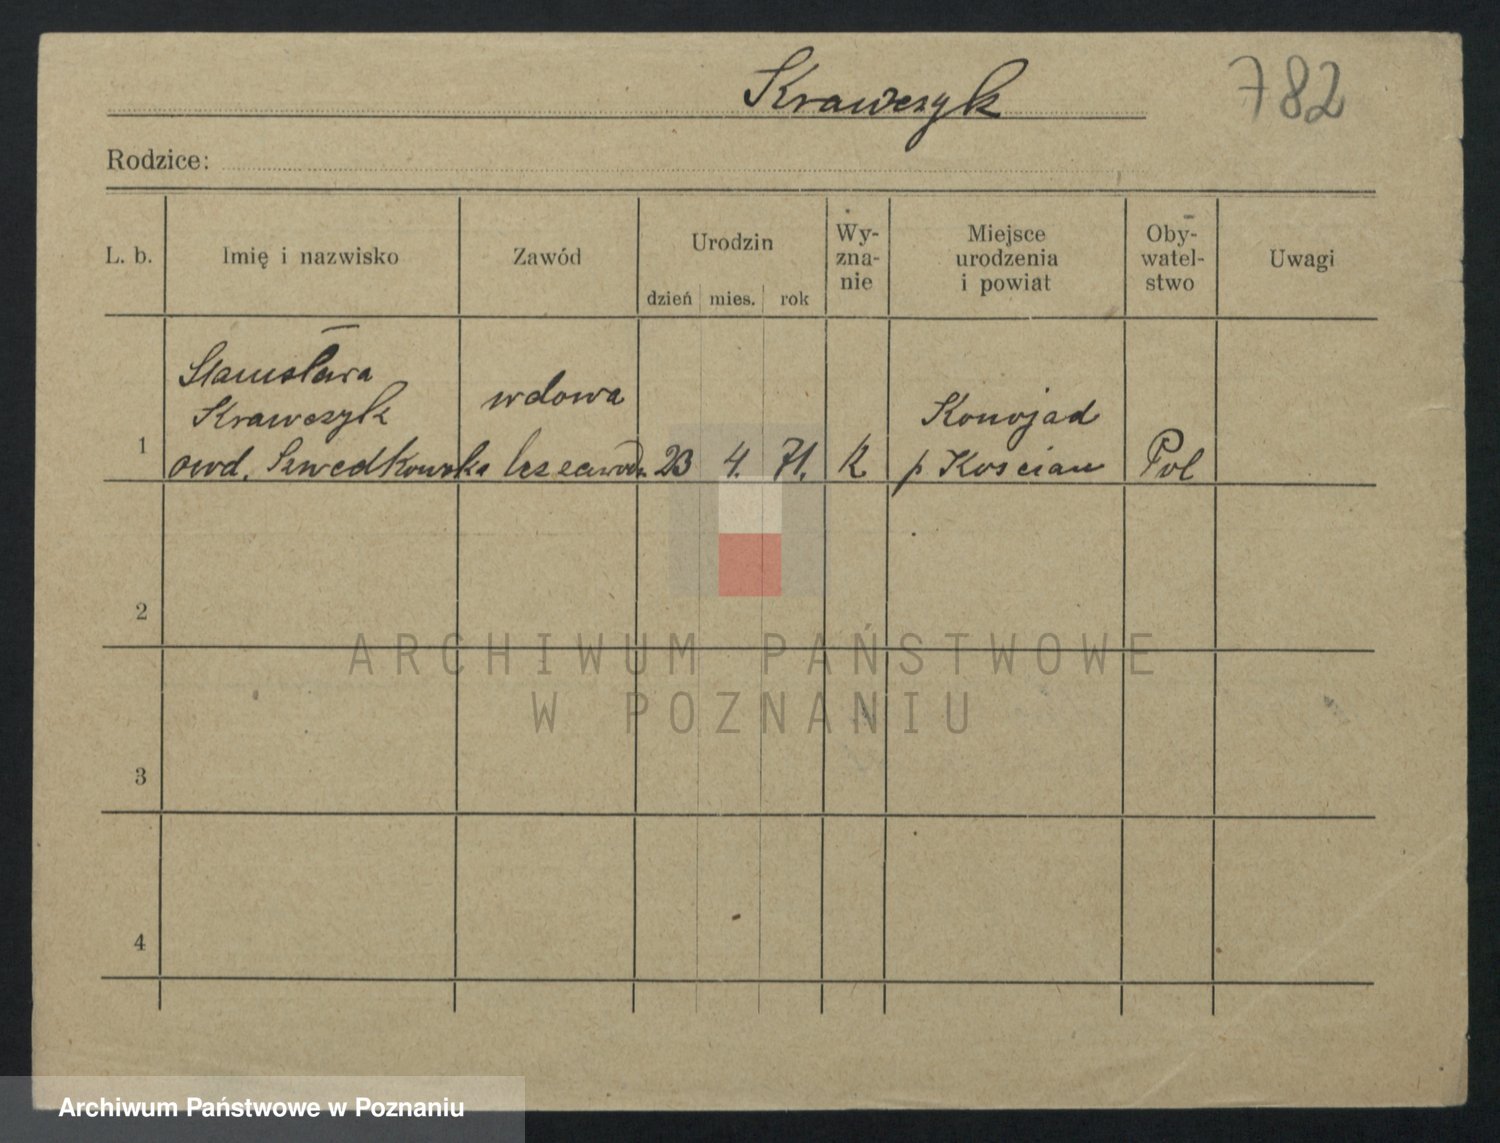 Krawczyk
782
Rodzice:
L. b.
Imię i nazwisko
Zawód
Urodzin
dzień mies. rok
Wy-
zna-
nie
Miejsce
urodzenia
i powiat
Oby-
watel-
stwo
Uwagi
1
Stanisława
Krawczyk
owd. Szwedkowska
wdowa
bez zawodu
23 4. 71.
k
Konojad
p Kościan
Pol
2
3
4
ARCHIWUM PAŃSTWOWE
W POZNANIU
Archiwum Państwowe w Poznaniu